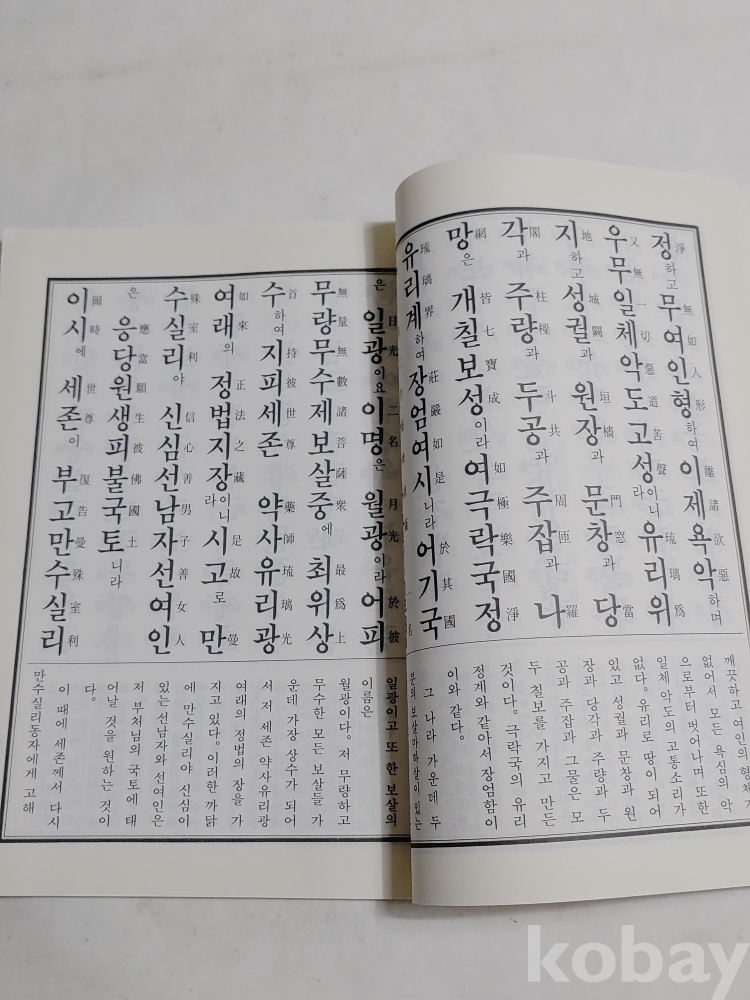 정하고 무여인형하여 이제욕악하며
淨 無如人形 離諸欲惡
우무일체악도고성이니 유리위
又無一切惡道苦聲 琉璃爲
지하고 성궐과 원장과 문창과 당
地 城闕 垣墻 門窓 當
각과 주량과 두공과 주잡과 나
閣 柱樑 斗共 周匝 羅
망은 개칠보성이라 여극락국정
網 皆七寶成 如極樂國淨
유리계하여 장엄여시니라 어기국
琉璃界 莊嚴如是 於其國
깨끗하고 여인의 형체가
없어서 모든 욕심의 악
으로부터 벗어나며 또한
일체 악도의 고통소리가
없다. 유리로 땅이 되어
있고 성궐과 문창과 원
장과 당각과 주량과 두
공과 주잡과 그물은 모
두 칠보를 가지고 만든
것이다. 극락국의 유리
정계와 같아서 장엄함이
이와 같다.
그 나라 가운데 두
분의 보살마하살이 있는
은 일광이요 이명은 월광이라 어피
日光 二名 月光 於彼
무량무수제보살중에 최위상
無量無數諸菩薩衆 最爲上
수하여 지피세존 약사유리광
首 持彼世尊 藥師琉璃光
여래의 정법지장이니라 시고로 만
如來 正法之藏 是故 曼
수실리야 신심선남자선여인
殊室利 信心善男子善女人
은 응당원생피불국토니라
應當願生彼佛國土
이시에 세존이 부고만수실리
爾時 世尊 復告曼殊室利
일광이고 또 한 보살의
이름은
월광이다. 저 무량하고
무수한 모든 보살들 가
운데 가장 상수가 되어
서 저 세존 약사유리광
여래의 정법의 장을 가
지고 있다. 이러한 까닭
에 만수실리야 신심이
있는 선남자와 선여인은
저 부처님의 국토에 태
어날 것을 원하는 것이
다.
이 때에 세존께서 다시
만수실리동자에게 고해
kobay